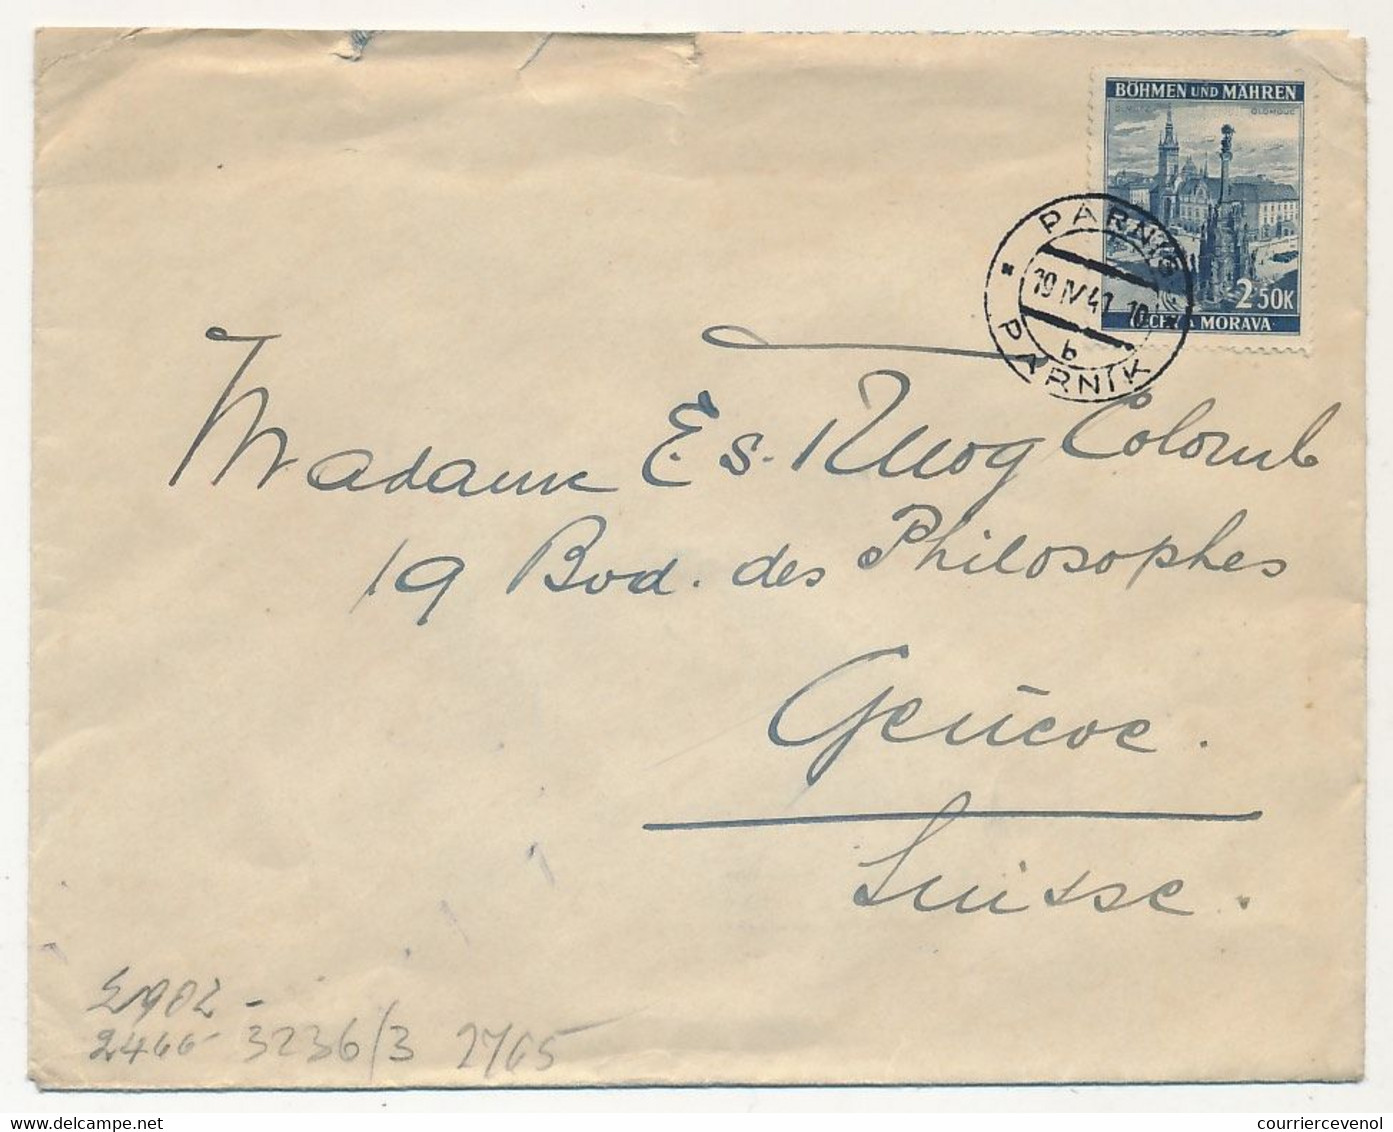 BÖHMEN UND MÄHREN
OLOMOUC
2 50K
ČECHY A MORAVA
PARNIG
19 IV 41 10
b
PARNÍK
Madame E. s. Colomb
19 Bvd. des Philosophes
Genève.
Suisse.
3236/3
www.delcampe.net
courriercevenol